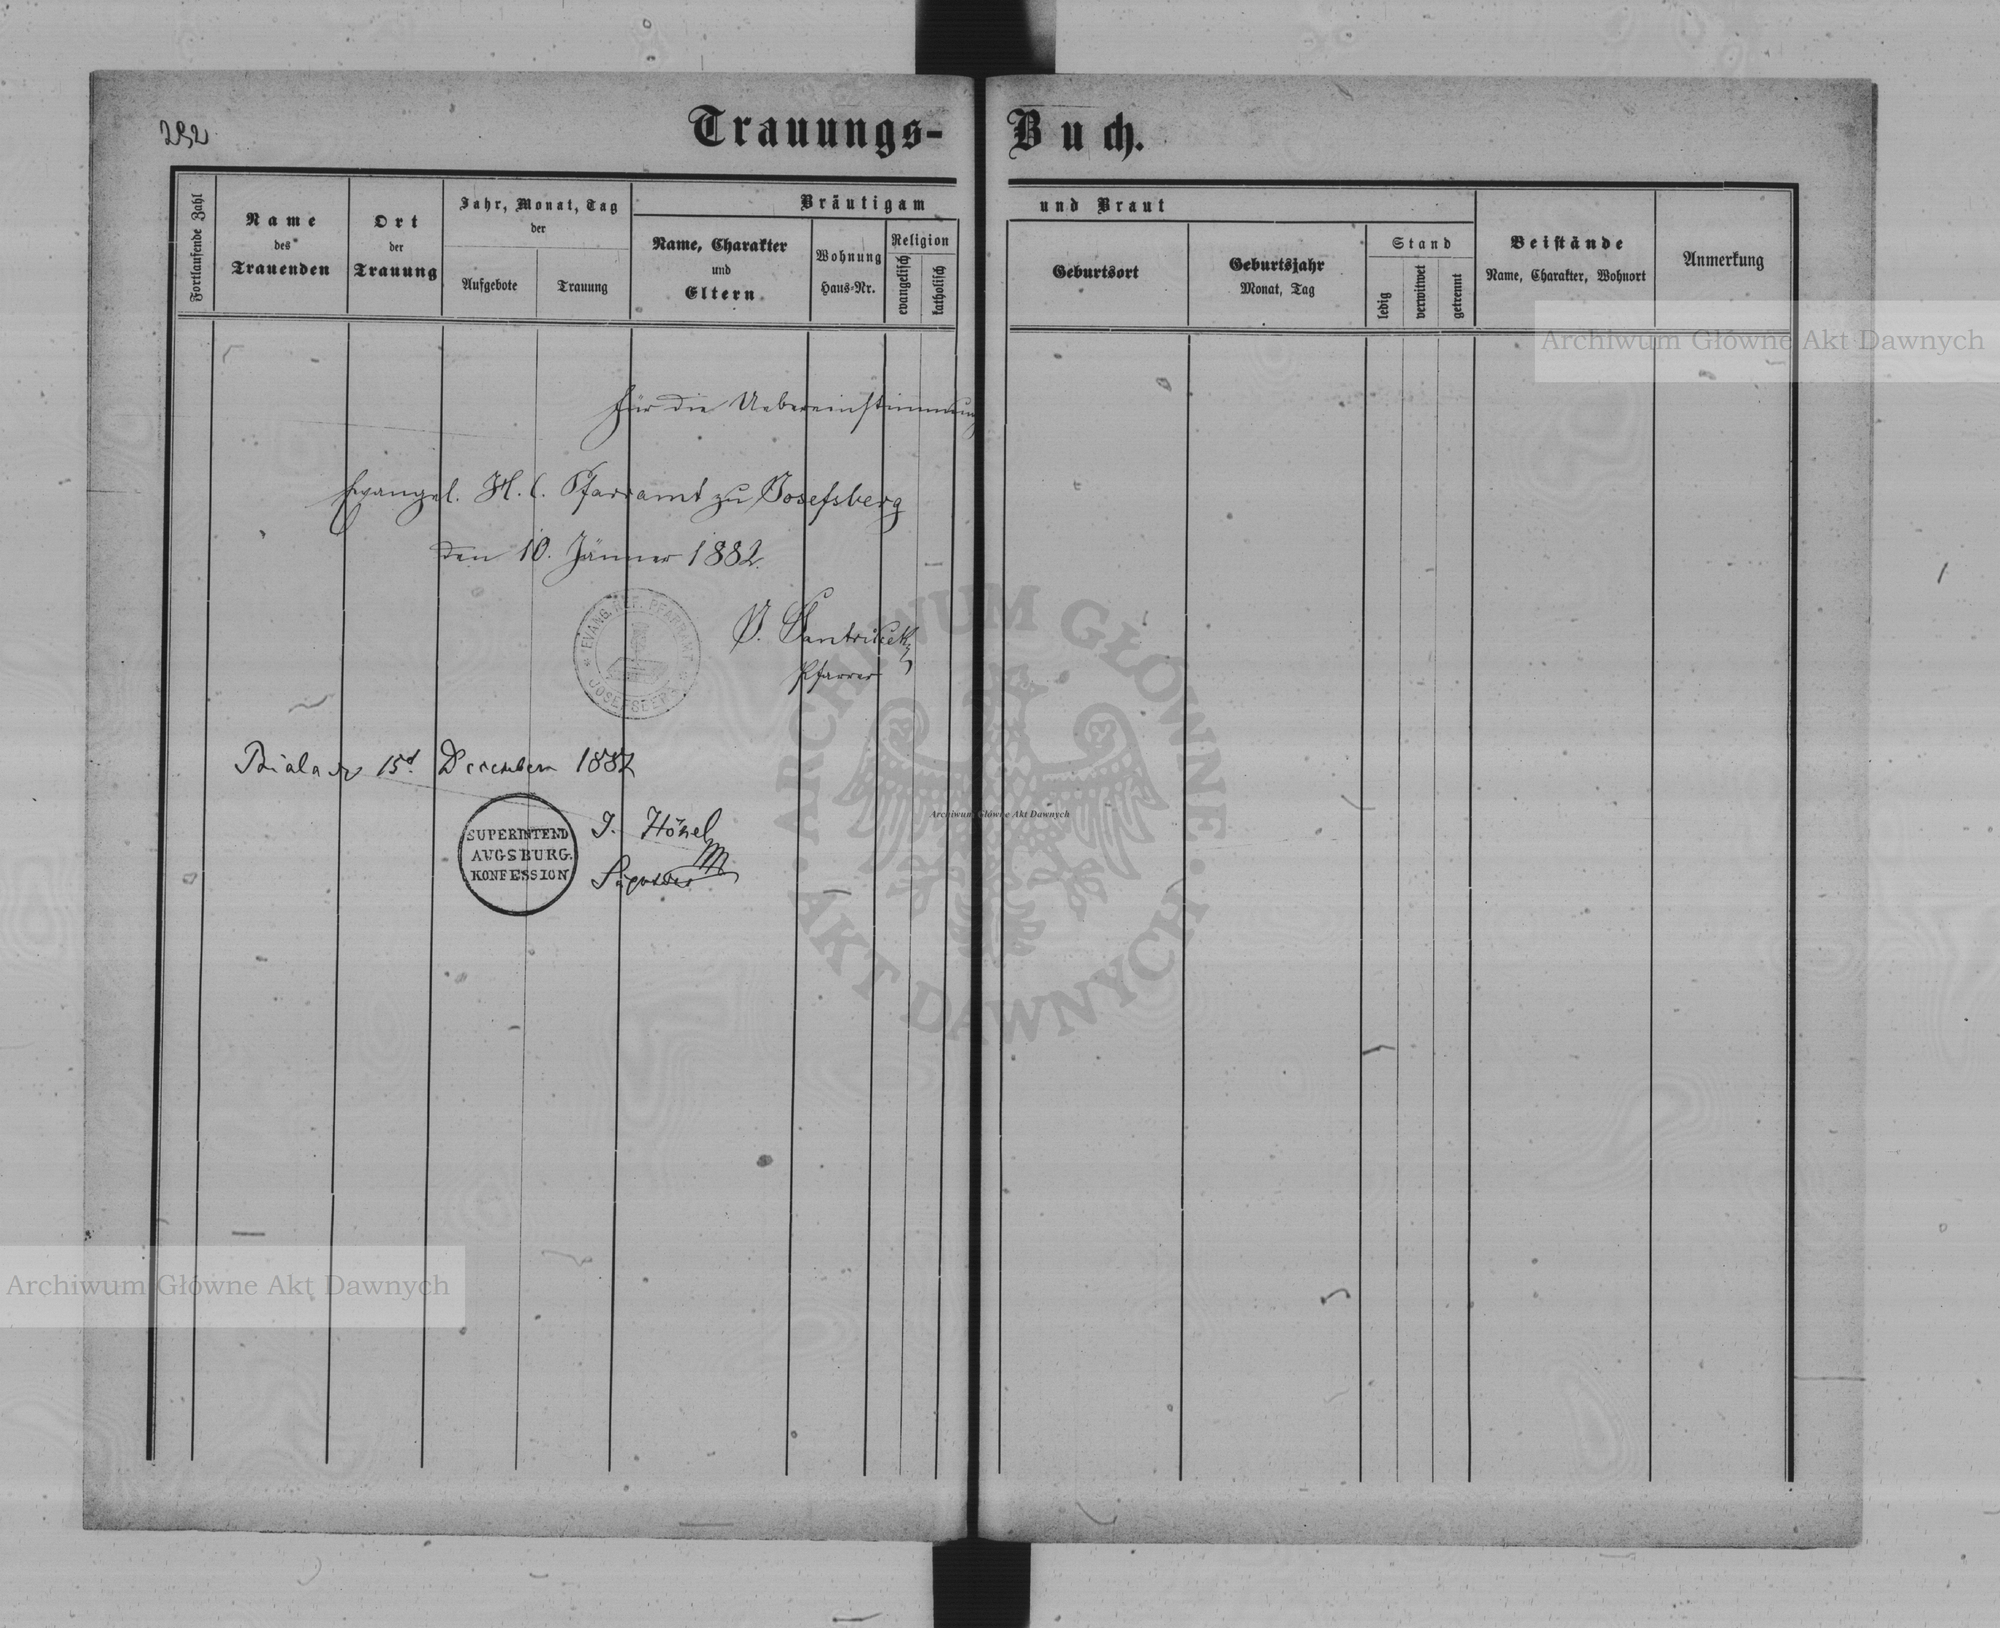 292
Trauungs-Buch.
Fortlaufende Zahl
Name des Trauenden
Ort der Trauung
Jahr, Monat, Tag der
Aufgebote
Trauung
Bräutigam und Braut
Name, Charakter und Eltern
Wohnung Haus-Nr.
Religion
evangelisch
katholisch
Geburtsort
Geburtsjahr Monat, Tag
Stand
ledig
verwitwet
getrennt
Beistände Name, Charakter, Wohnort
Anmerkung
für die Uebereinstimmung
Evangel. H. C. Pfarramt zu Josefsberg
den 10. Jänner 1882.
Pfarrer
EVANG. REF. PFARRAMT
JOSEFSBERG
Biala den 15t December 1882
SUPERINTEND
AUGSBURG.
KONFESSION
J. Hönel
ARCHIWUM GŁÓWNE AKT DAWNYCH
Archiwum Główne Akt Dawnych
Archiwum Główne Akt Dawnych
Archiwum Główne Akt Dawnych